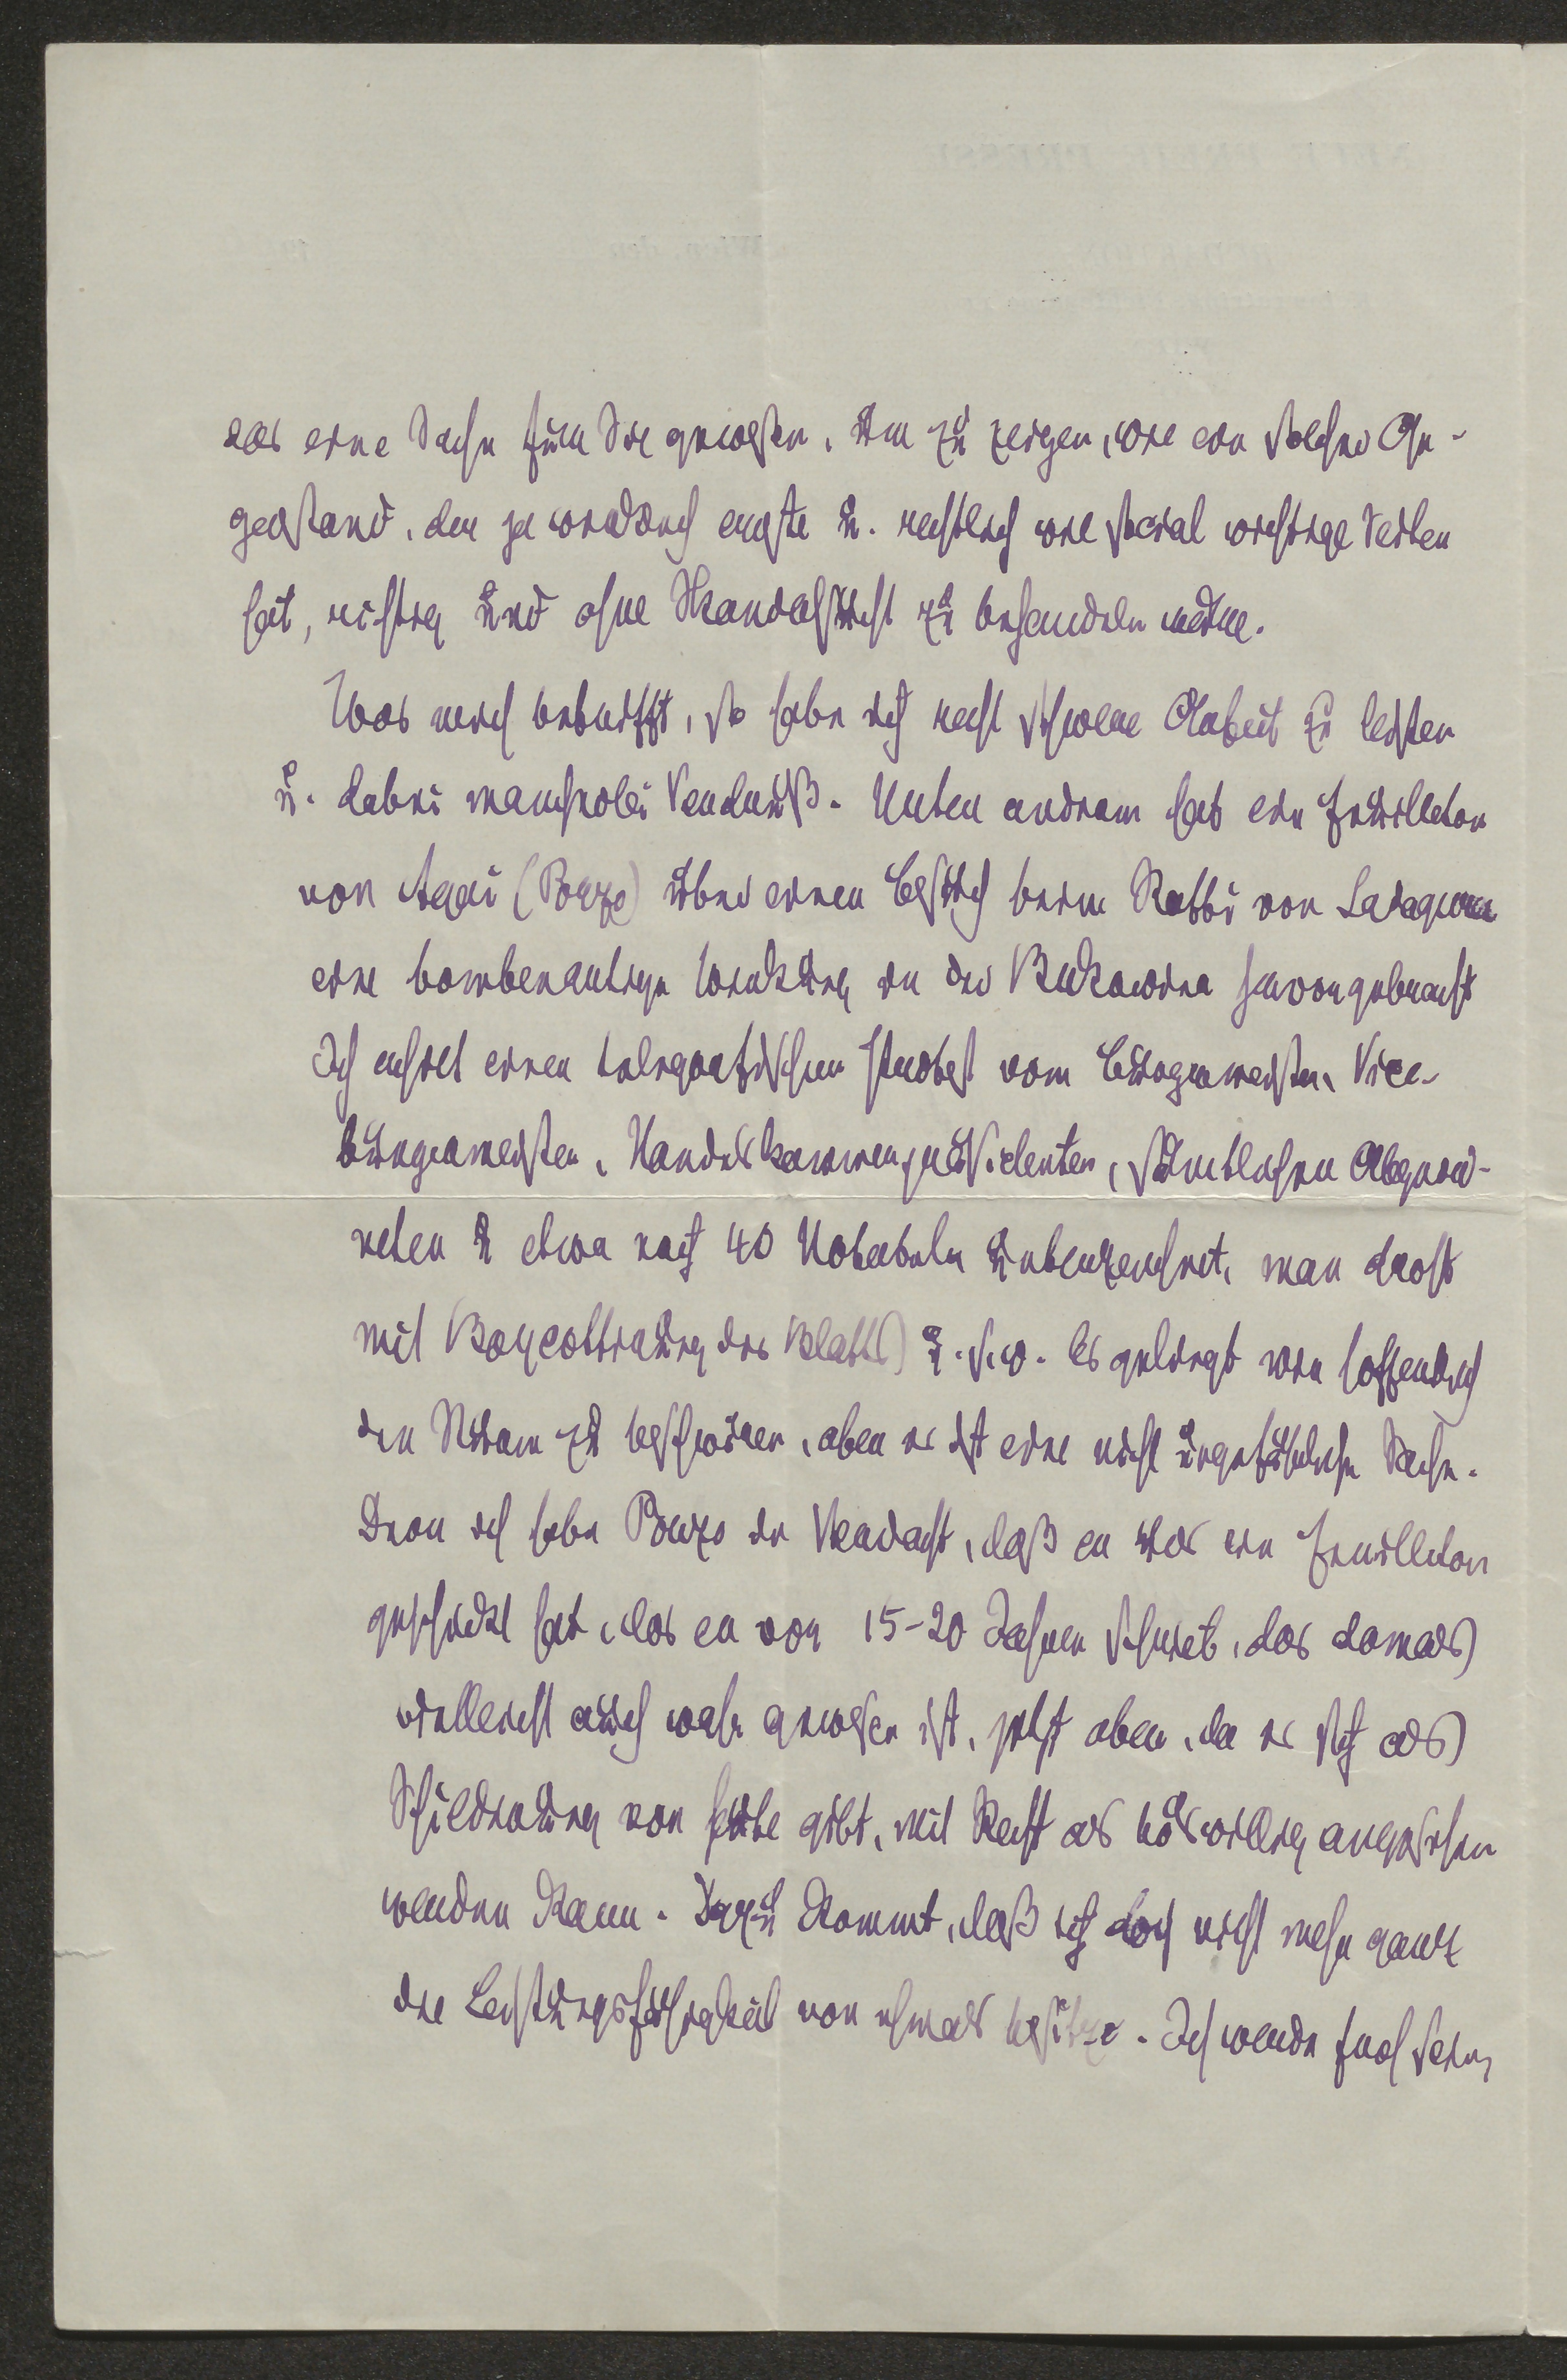 das eine Sache für Sie gewesen, um zu zeigen, wie ein solcher Ge-
genstand, der ja wirklich ernste u. rechtlich wie social wichtige Seiten
hat, richtig und ohne Skandalsucht zu behandeln wäre.
Was mich betrifft, so habe ich recht schwere Arbeit zu leisten
u. dabei mancherlei Verdruß. Unter andrem hat ein Feuilleton
von (Porzo) über einen Besuch beim Rabbi von Sadagura
eine bombenartige Wirkung in der Bukowina hervorgebracht
Ich erhielt einen telegrafischen Protest vom Bürgermeister, Vice-
bürgermeister, Handelskammerpräsidenten, sämtlichen Abgeord-
neten u etwa noch 40 Notabeln unterzeichnet, man droht
mit Boycottierung des Blatts u. s. w. Es gelingt mir hoffentlich
den Sturm zu beschwören, aber es ist eine nicht ungefährliche Sache.
Denn ich habe Porzo in Verdacht, daß er uns ein Feuilleton
geschickt hat, das er vor 15-20 Jahren schrieb, das damals
vielleicht auch wahr gewesen ist, jetzt aber, da es sich als
Schilderung von heute gibt, mit Recht als böswillig angesehen
werden kann. Dazu kommt, daß ich doch nicht mehr ganz
die Leistungsfähigkeit von ehmals besitze. Ich werde froh sein,